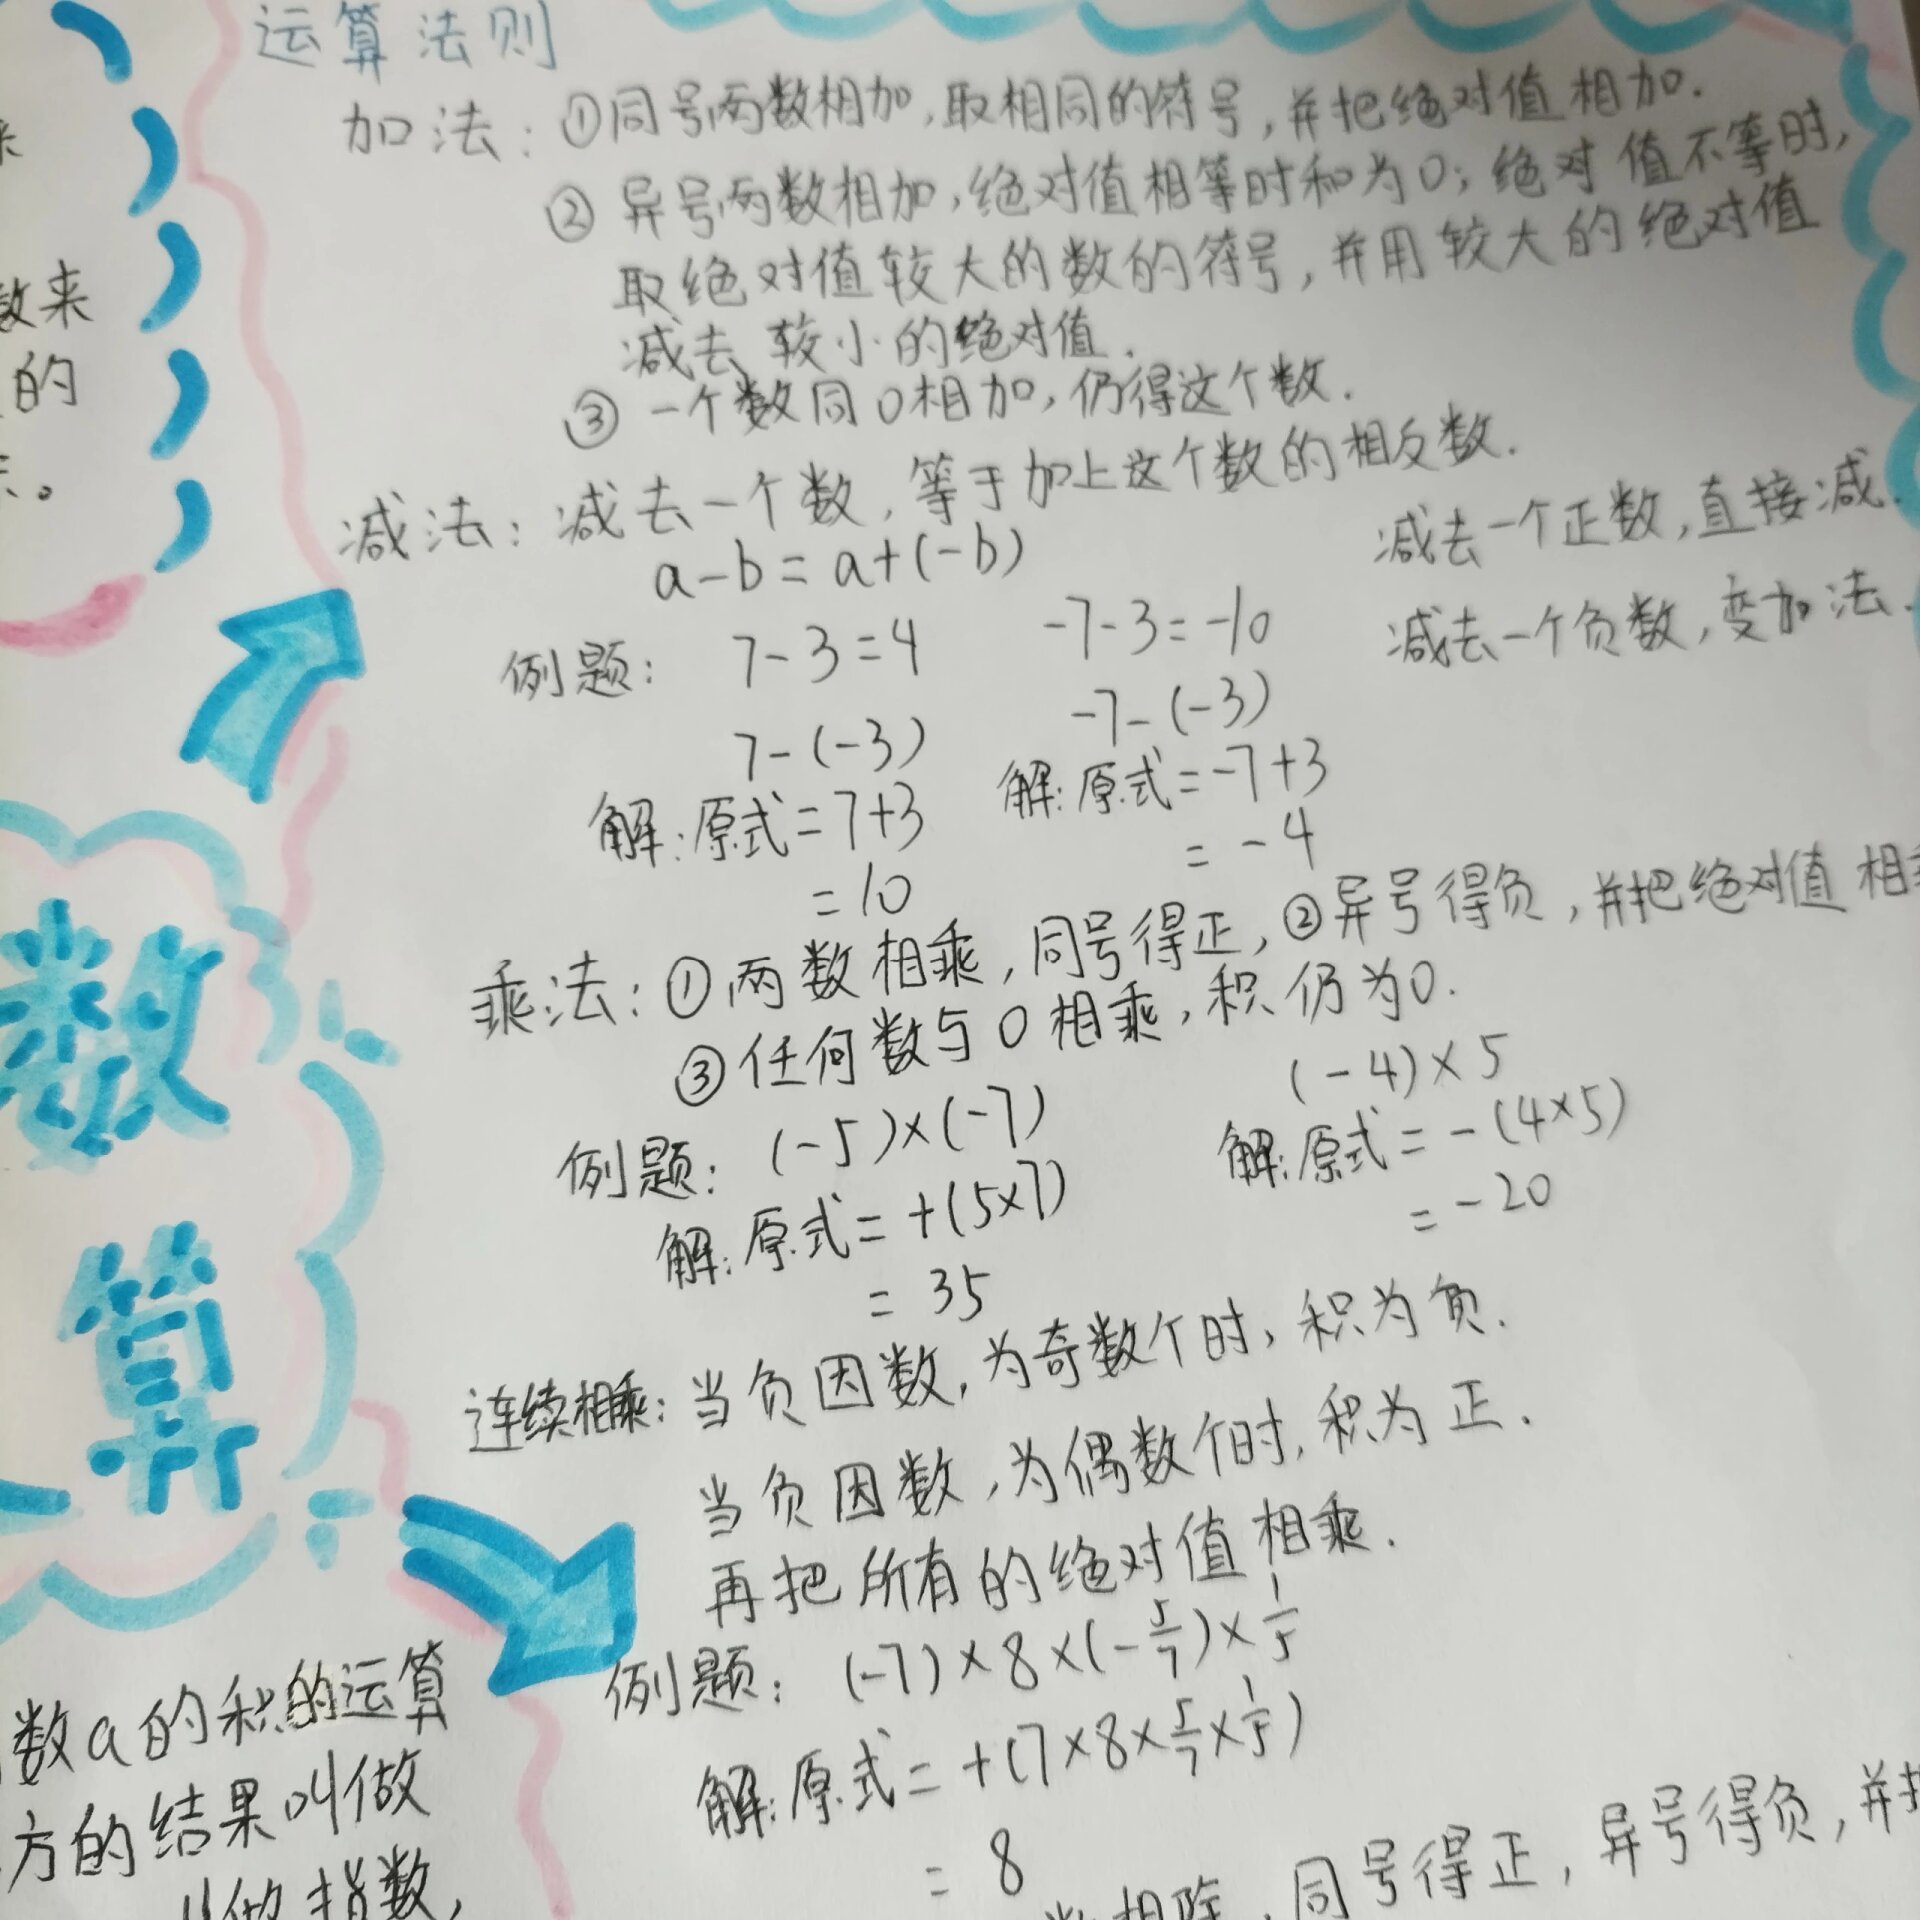 运算法则
加法：①同号两数相加，取相同的符号，并把绝对值相加.
②异号两数相加，绝对值相等时和为0；绝对值不等时，
取绝对值较大的数的符号，并用较大的绝对值
减去较小的绝对值.
③一个数同0相加，仍得这个数.
减法：减去一个数，等于加上这个数的相反数.
a-b=a+(-b)
减去一个正数，直接减.
减去一个负数，变加法.
例题： 7-3=4 -7-3=-10
7-(-3) -7-(-3)
解：原式=7+3 解：原式=-7+3
=10 =-4
乘法：①两数相乘，同号得正，②异号得负，并把绝对值相
③任何数与0相乘，积仍为0.
例题： (-5)×(-7) (-4)×5
解：原式=+(5×7) 解：原式=-(4×5)
=35 =-20
连续相乘：当负因数，为奇数个时，积为负.
当负因数，为偶数个时，积为正.
再把所有的绝对值相乘.
例题： (-7)×8×(-5/7)×1/5
解：原式=+(7×8×5/7×1/5)
=8
数相除，同号得正，异号得负，并
数来
的
数
算
数a的积的运算
方的结果叫做
叫做指数，